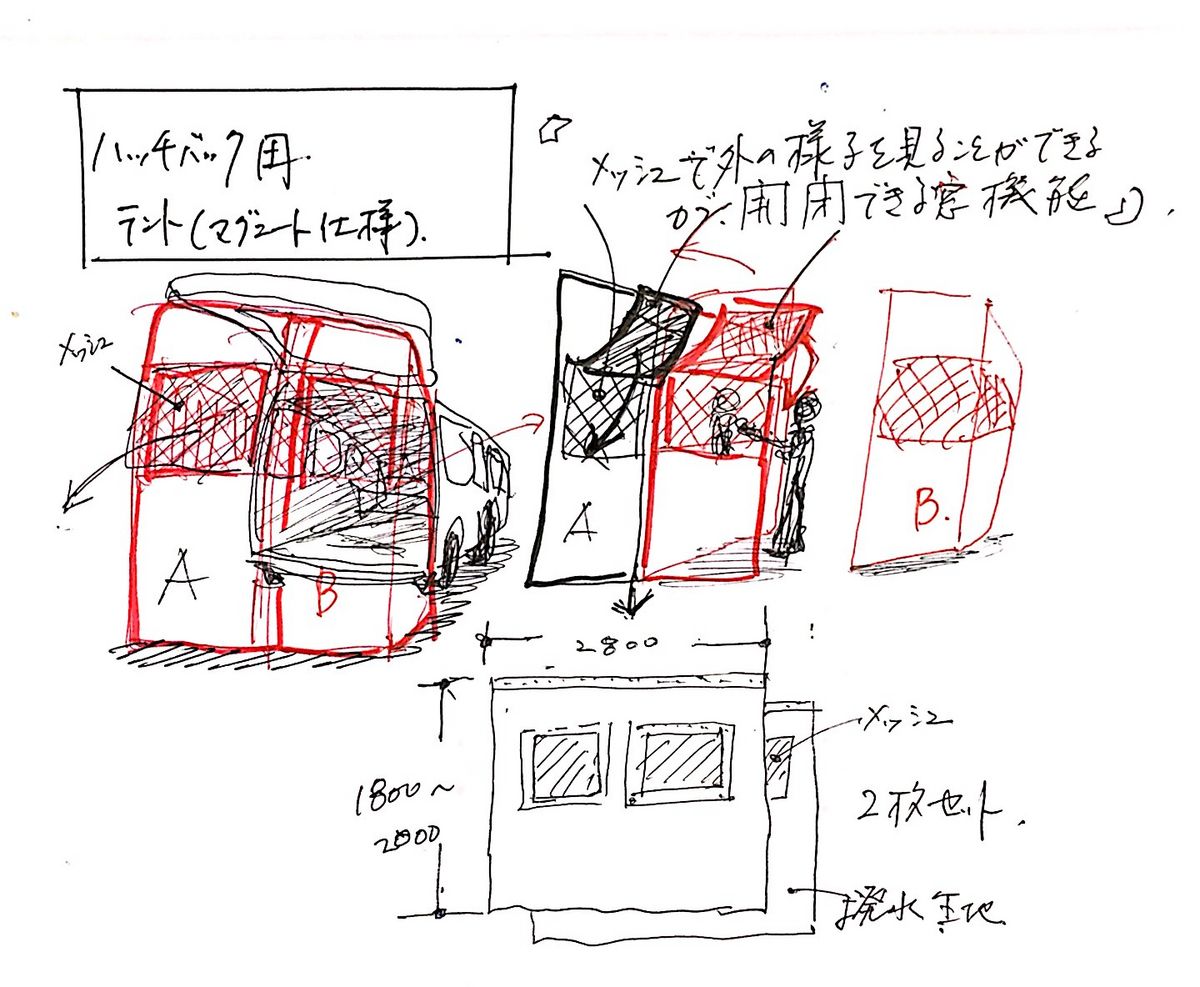 ハッチバック用
テント(マグネート仕様).
☆
メッシュで外の様子を見ることができる
が、開閉できる窓機能も).
メッシュ
A
B
A
B.
2800
1800~
2000
メッシュ
2枚セット.
撥水生地